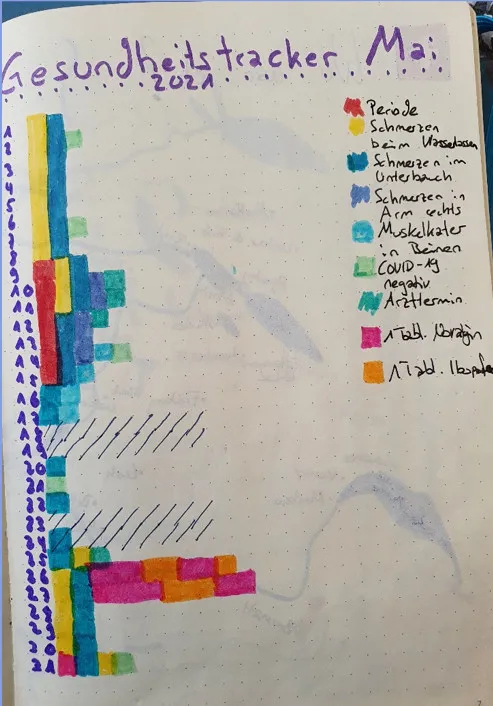 Gesundheitstracker Mai
2021
Periode
Schmerzen
beim Wasserlassen
Schmerzen im
Unterbauch
Schmerzen in
Arm rechts
Muskelkater
in Beinen
COVID-19
negativ
Arzttermin
1 Tabl.
1 Tabl.
1
2
3
4
5
6
7
8
9
10
11
12
13
14
15
16
17
18
19
20
21
22
23
24
25
26
27
28
29
30
31